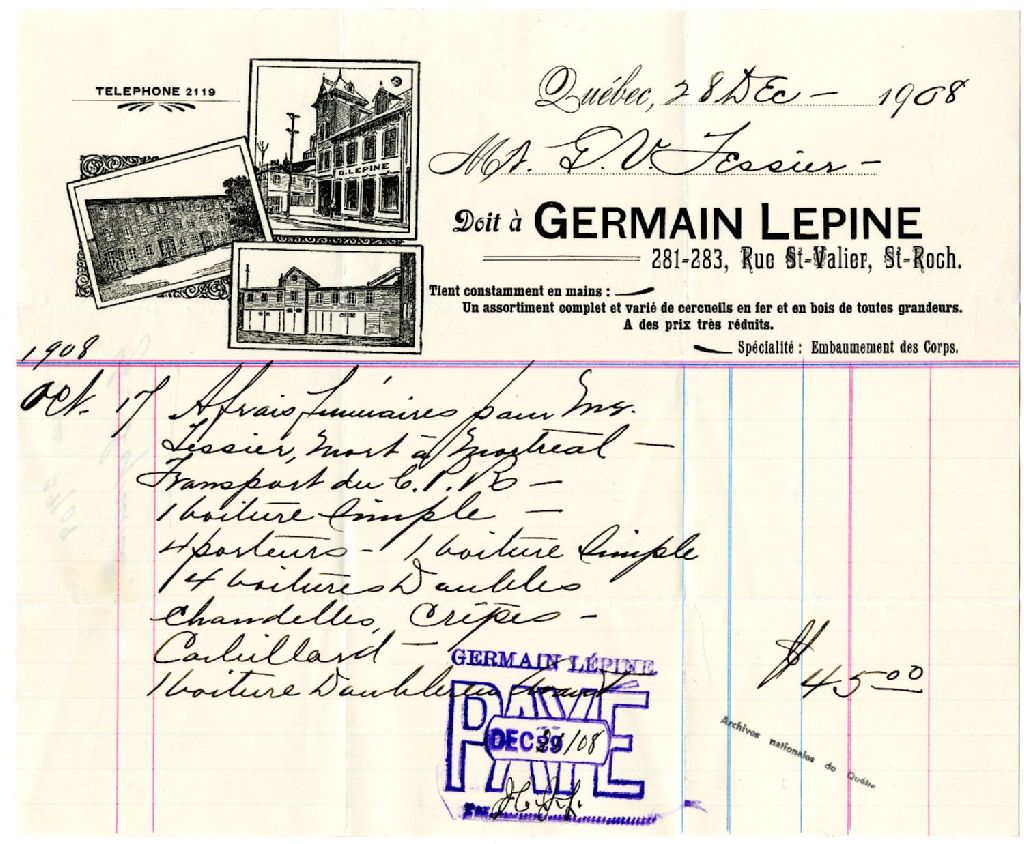 TELEPHONE 2119
G. LEPINE
Québec, 28 DEc - 1908
Mr. G. V. Tessier -
Doit à GERMAIN LEPINE
281-283, Rue St-Valier, St-Roch.
Tient constamment en mains :
Un assortiment complet et varié de cercueils en fer et en bois de toutes grandeurs.
A des prix très réduits.
Spécialité : Embaumement des Corps.
1908
Oct. 17 A frais funéraires pour Mr.
Tessier, mort à Montreal -
Transport du C. P. R -
1 voiture Simple -
4 porteurs - 1 voiture Simple
4 voitures Doubles
chandelles, Crêpes -
Corbillard -
1 voiture Double en
$45.00
GERMAIN LÉPINE
PAYE
DEC 29/08
Par
Archives nationales du Québec